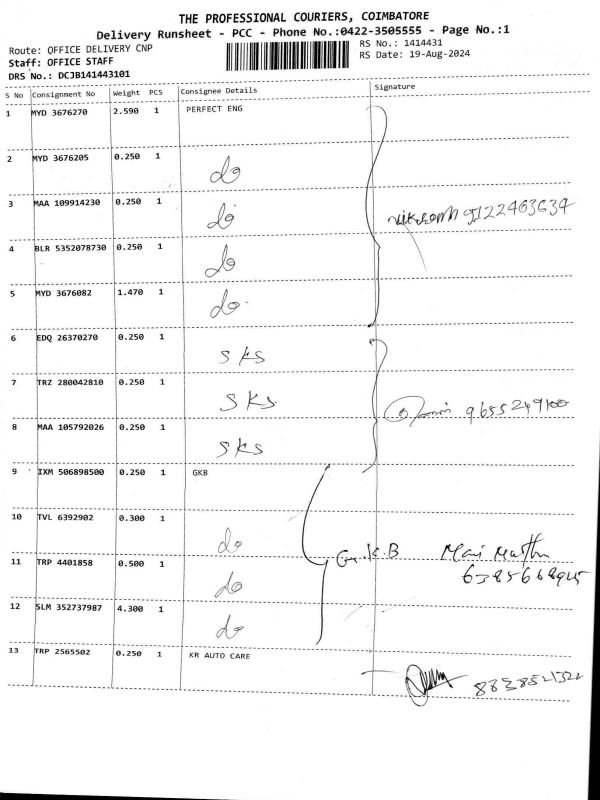 THE PROFESSIONAL COURIERS, COIMBATORE
Delivery Runsheet - PCC - Phone No.:0422-3505555 - Page No.:1
Route: OFFICE DELIVERY CNP
RS No.: 1414431
Staff: OFFICE STAFF
RS Date: 19-Aug-2024
DRS No.: DCJB141443101
S No Consignment No Weight PCS Consignee Details Signature
1 MYD 3676270 2.590 1 PERFECT ENG
2 MYD 3676205 0.250 1 do
3 MAA 109914230 0.250 1 do 9122463634
4 BLR 5352078730 0.250 1 do
5 MYD 3676082 1.470 1 do
6 EDQ 26370270 0.250 1 SKS
7 TRZ 280042810 0.250 1 SKS
8 MAA 105792026 0.250 1 SKS
9 IXM 506898500 0.250 1 GKB
10 TVL 6392902 0.300 1 do
G.K.B
11 TRP 4401858 0.500 1 do
12 SLM 352737987 4.300 1 do
13 TRP 2565502 0.250 1 KR AUTO CARE